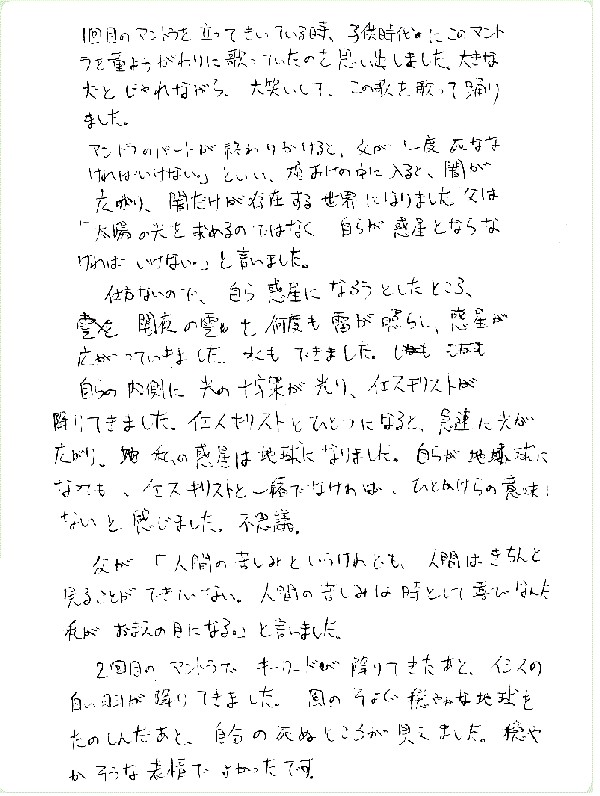 1回目のマントラを立ってきいている時、子供時代にこのマント
ラを童ようがわりに歌っていたのを思い出しました。大きな
犬とじゃれながら、大笑いして、この歌を歌って踊り
ました。
マントラのパートが終わりかけると、父が「一度死なな
ければいけない。」といい、棺おけの中に入ると、闇が
広がり、闇だけが存在する世界になりました。父は
「太陽の光を求めるのではなく、自らが惑星とならな
ければいけない。」と言いました。
仕方ないので、自ら惑星になろうとしたところ、
闇夜の雲を何度も雷が照らし、惑星が
広がっていきました。水もできました。
自らの内側に光の十字架が光り、イエスキリストが
降りてきました。イエスキリストとひとつになると、急速に光が
広がり、私の惑星は地球になりました。自らが地球に
なっても、イエスキリストと一緒でなければ、ひとかけらの意味も
ないと感じました。不思議。
父が「人間の苦しみというけれども、人間はきちんと
見ることができていない。人間の苦しみは時として尊いなんだ
私がおまえの目になる。」と言いました。
2回目のマントラで キーワードが降りてきたあと、イエスの
白い羽が降りてきました。風のそよぐ穏やかな地球を
たのしんだあと、自分の死ぬところが見えました。穏や
かそうな表情でよかったです。